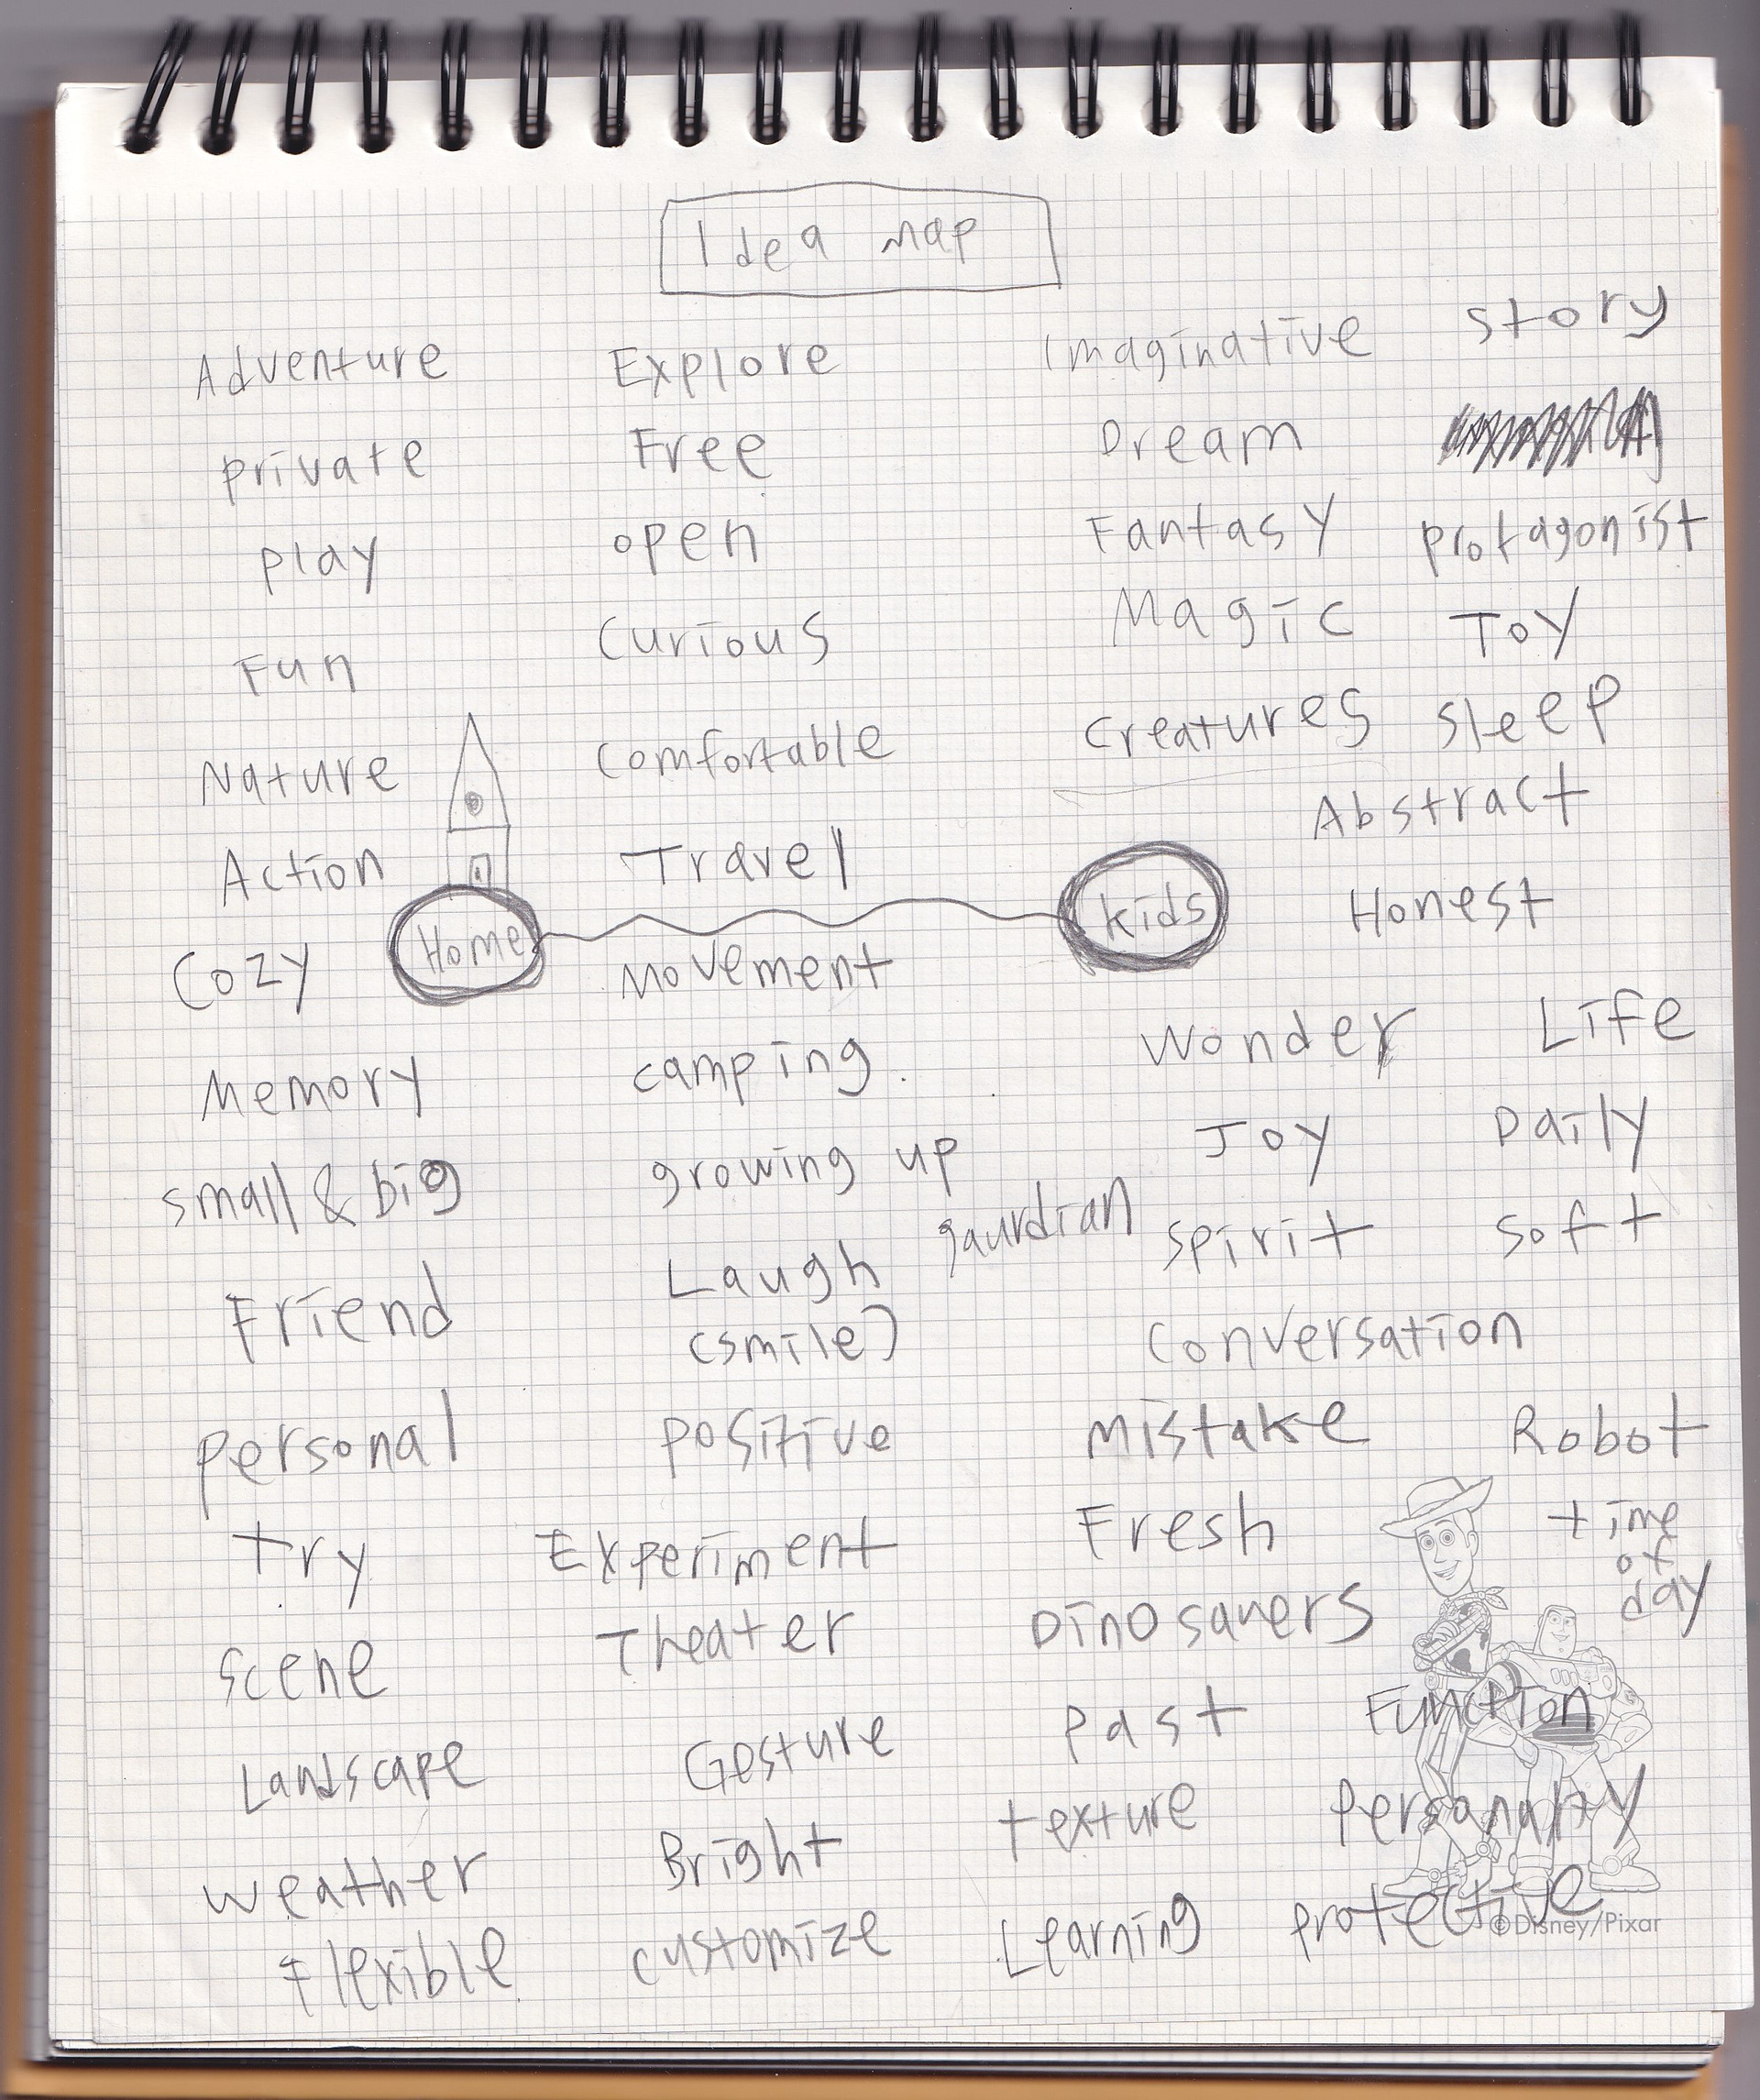 Idea map
Adventure
private
play
Fun
Nature
Action
Cozy
Memory
small & big
Friend
personal
try
scene
Landscape
weather
flexible
Home
Explore
Free
open
Curious
comfortable
Travel
Movement
camping.
growing up
Laugh
(smile)
positive
Experiment
Theater
Gesture
Bright
customize
Imaginative
Dream
Fantasy
Magic
creatures
kids
wonder
Joy
gaurdian
spirit
conversation
mistake
Fresh
Dinosauers
past
texture
Learning
story
protagonist
Toy
sleep
Abstract
Honest
Life
Daily
soft
Robot
time
of
day
Function
protective
©Disney/Pixar